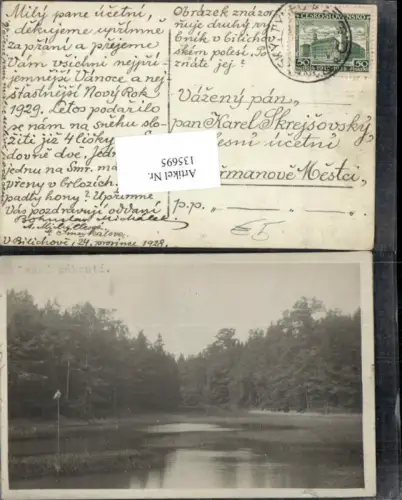 Milý pane účetní,
děkujeme upřímně
za přání a přejeme
Vám všichni nejpří-
jemnější Vánoce a nej-
šťastnější Nový Rok
1929. Letos podařilo
se nám na sněhu slo-
žiti již 4 lišky
dovně dvě, jed
jednu na Smr. ma
vřeny v brlozích.
padly hony? Upřímně
Vás pozdravují oddaní
V Bilichově, 24. prosince 1928.
Obrázek znázor-
ňuje druhý ryb-
ník v bilichov-
ském polesí. Po-
znáte jej?
ČESKOSLOVENSKO
50 50
Vážený pán,
pan Karel Skrejšovský,
lesní účetní
Heřmanově Městci,
p.p. „ „
Artikel Nr.
135695